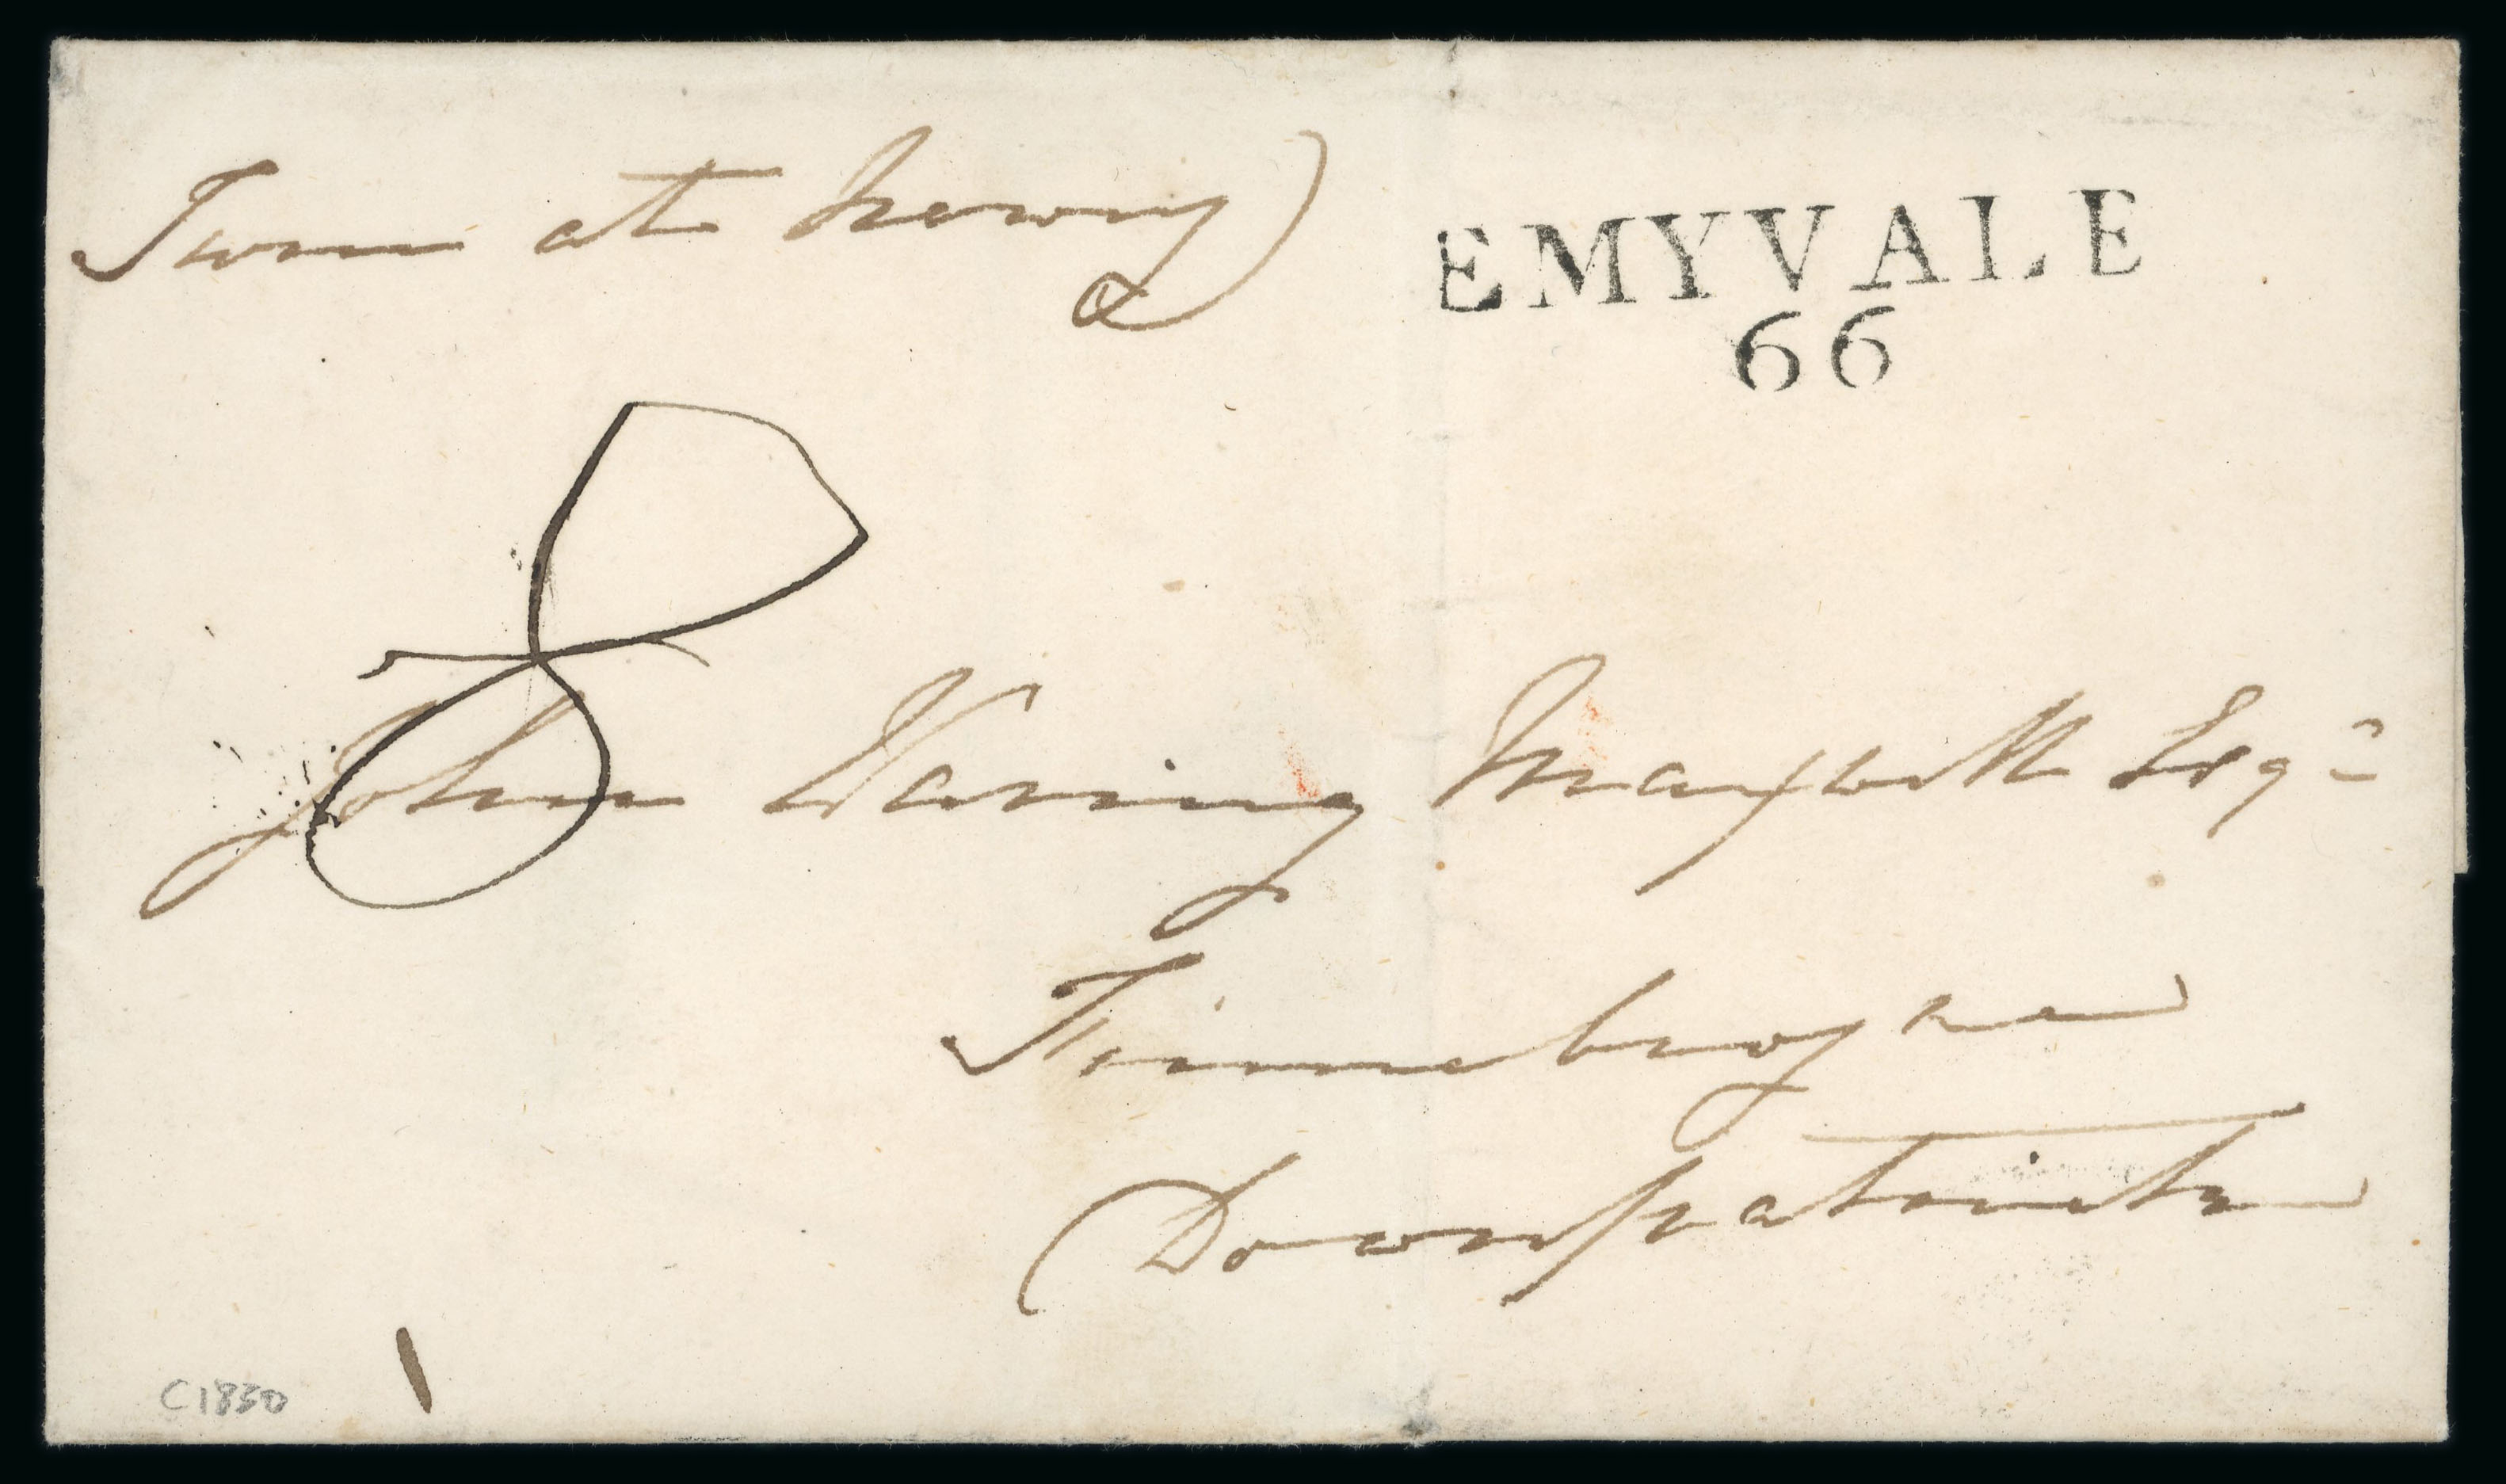 Turn at Newry
EMYVALE
66
8
John Waring Maxwell Esqr
Finnebrogue
Downpatrick
C1830